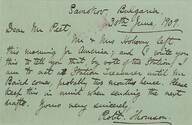 Samokov, Bulgaria,
30th June, 1909.
Dear Mr Peet
Mr & Mrs Holway left
this morning for America; and I write you
this to tell you that, by vote of the Station, I
am to act as Station Treasurer until Mr
Baird comes, probably two months hence. Please
keep this in mind when sending the next
drafts. Yours very sincerely,
Robt. Thomson.